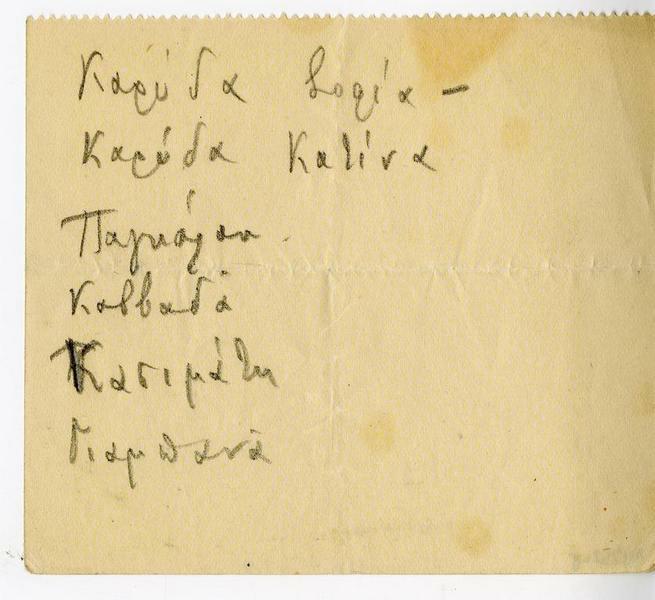 Καρύδα Σοφία –
Καρύδα Κατίνα
Παγκάλου
Καββαδά
Κασιμάτη
Γιαμπανά